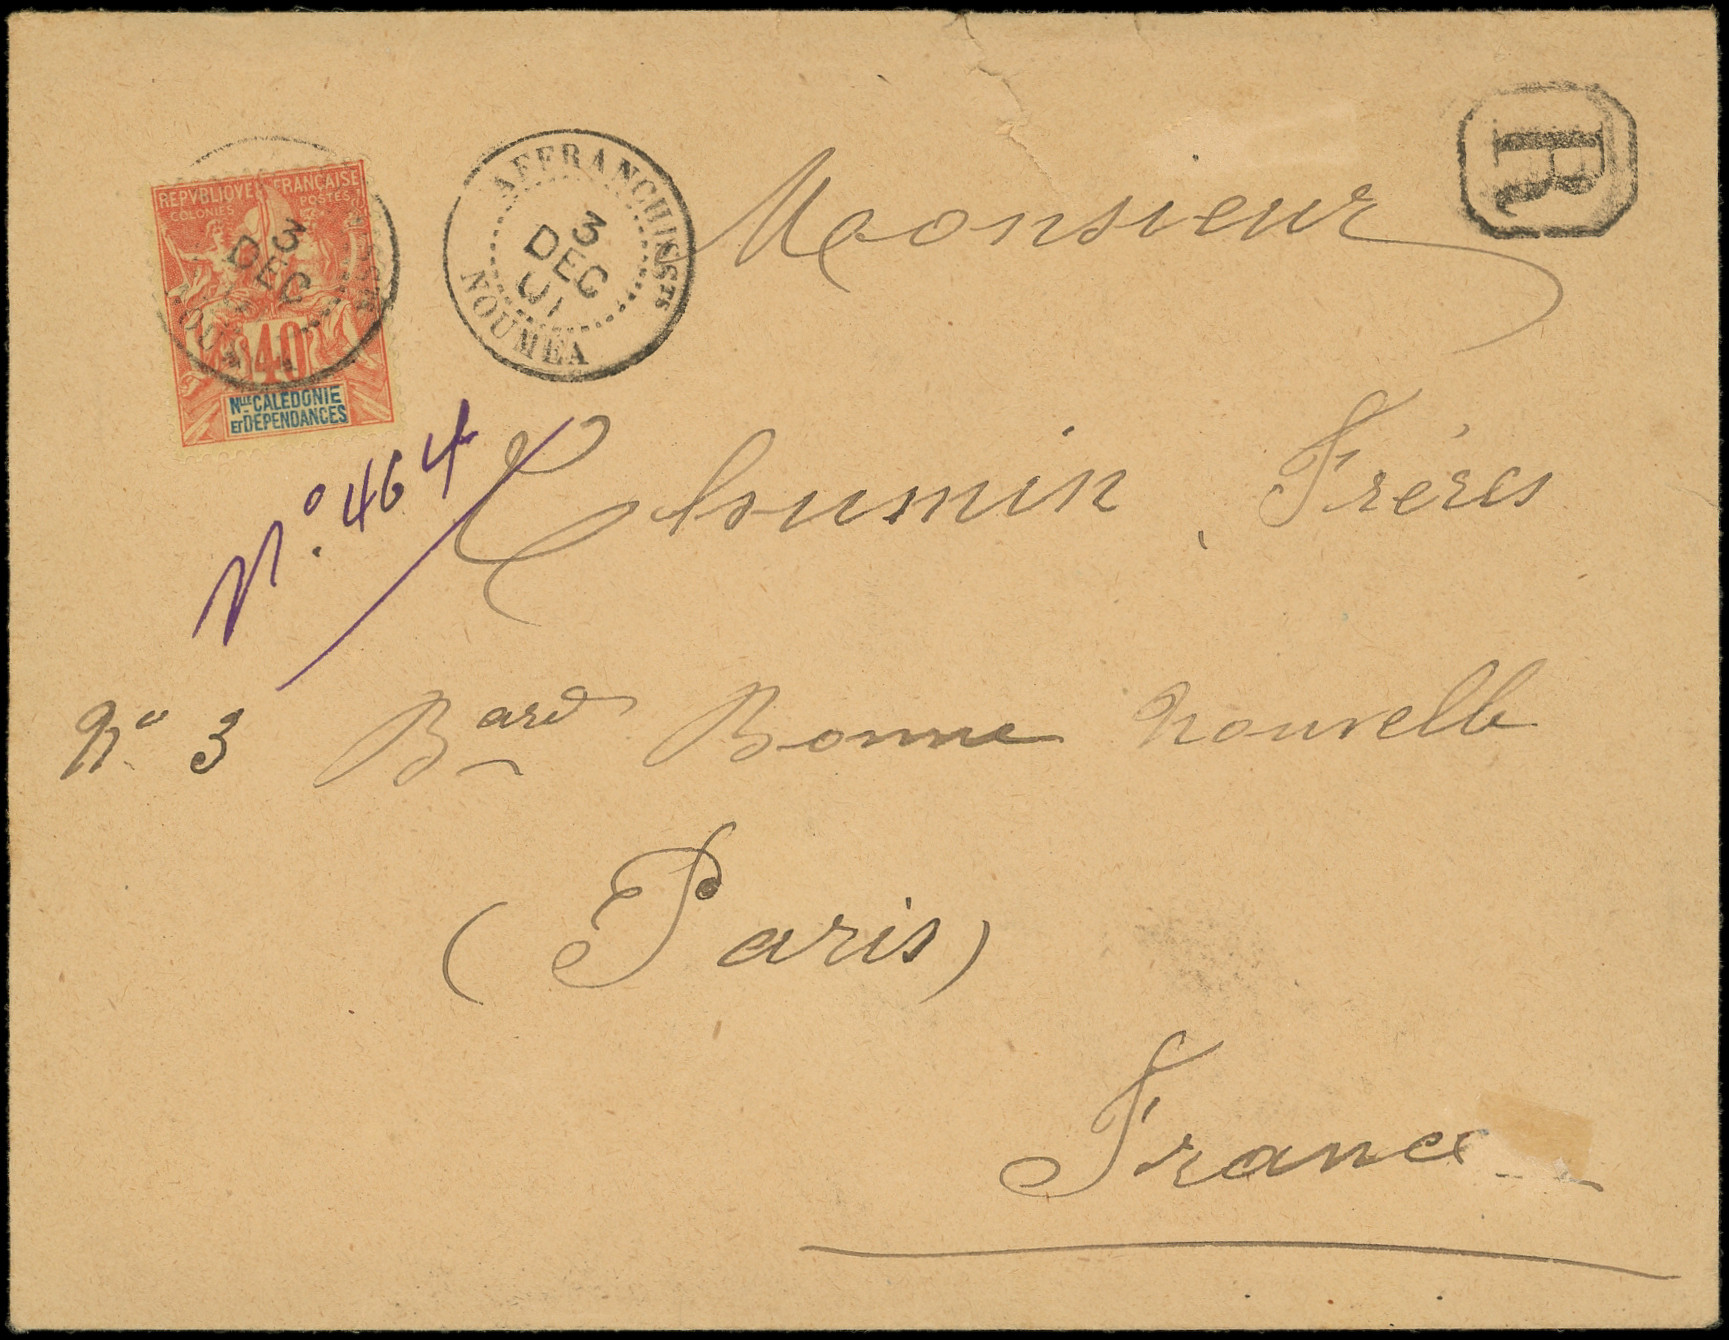 REPVBLIQVE FRANÇAISE
COLONIES POSTES
3
DEC
40
Nlle CALEDONIE
ET DEPENDANCES
AFFRANCHISSTS
3
DEC
01
NOUMEA
R
Monsieur
No. 464
Chumin Frères
No 3 Bard Bonne Nouvelle
(Paris)
France